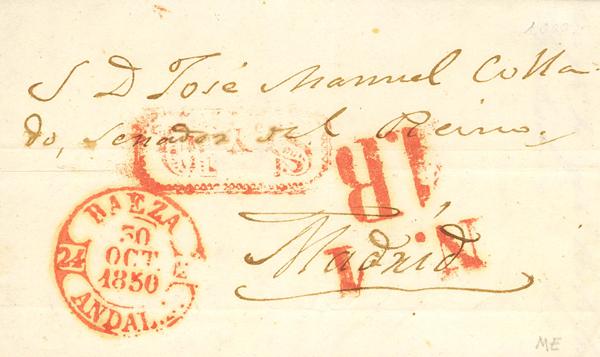 S D José Manuel Colla-
do, Senador del Reino.
Madrid
BAEZA
30
OCT.
1850
24
ANDAL.